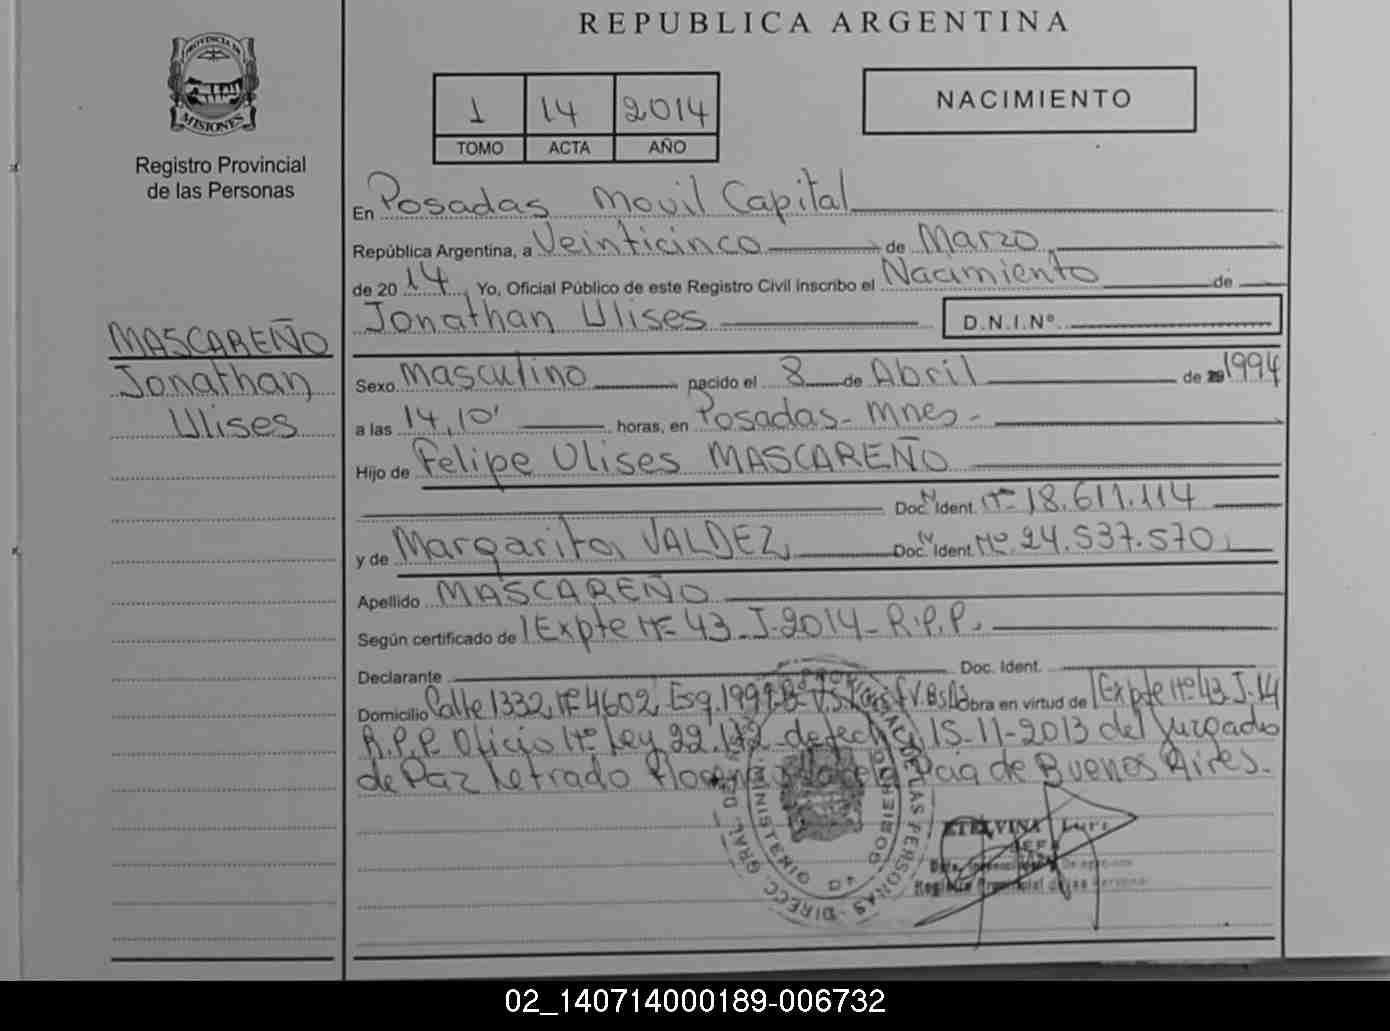 REPUBLICA ARGENTINA
PROVINCIA DE
MISIONES
Registro Provincial
de las Personas
1 14 2014
TOMO ACTA AÑO
NACIMIENTO
En Posadas Movil Capital
República Argentina, a Veinticinco de Marzo
de 20 14 Yo, Oficial Público de este Registro Civil inscribo el Nacimiento de
Jonathan Ulises D.N.I.Nº
MASCAREÑO
Jonathan
Ulises
Sexo Masculino nacido el 8 de Abril de 1994
a las 14,10' horas, en Posadas - Mnes -
Hijo de Felipe Ulises MASCAREÑO
Doc. N. Ident. Nº 18.611.114
y de Margarita VALDEZ Doc. N. Ident. Nº 24.537.570
Apellido MASCAREÑO
Según certificado de Expte Nº 43 - J - 2014 - R.P.P.
Declarante Doc. Ident.
Domicilio Calle 1332 Nº 4602 Esq. 1999 Obra en virtud de Expte Nº 43 J-14
R.P.P. Oficio Nº Ley 22.172 de fecha 15-11-2013 del Juzgado
de Paz Letrado Florencio de la Pcia de Buenos Aires.
DIRECC. GRAL. DE LAS PERSONAS
MINISTERIO DE GOBIERNO
ETELVINA
JEFA
Registro Provincial de las Personas
02_140714000189-006732